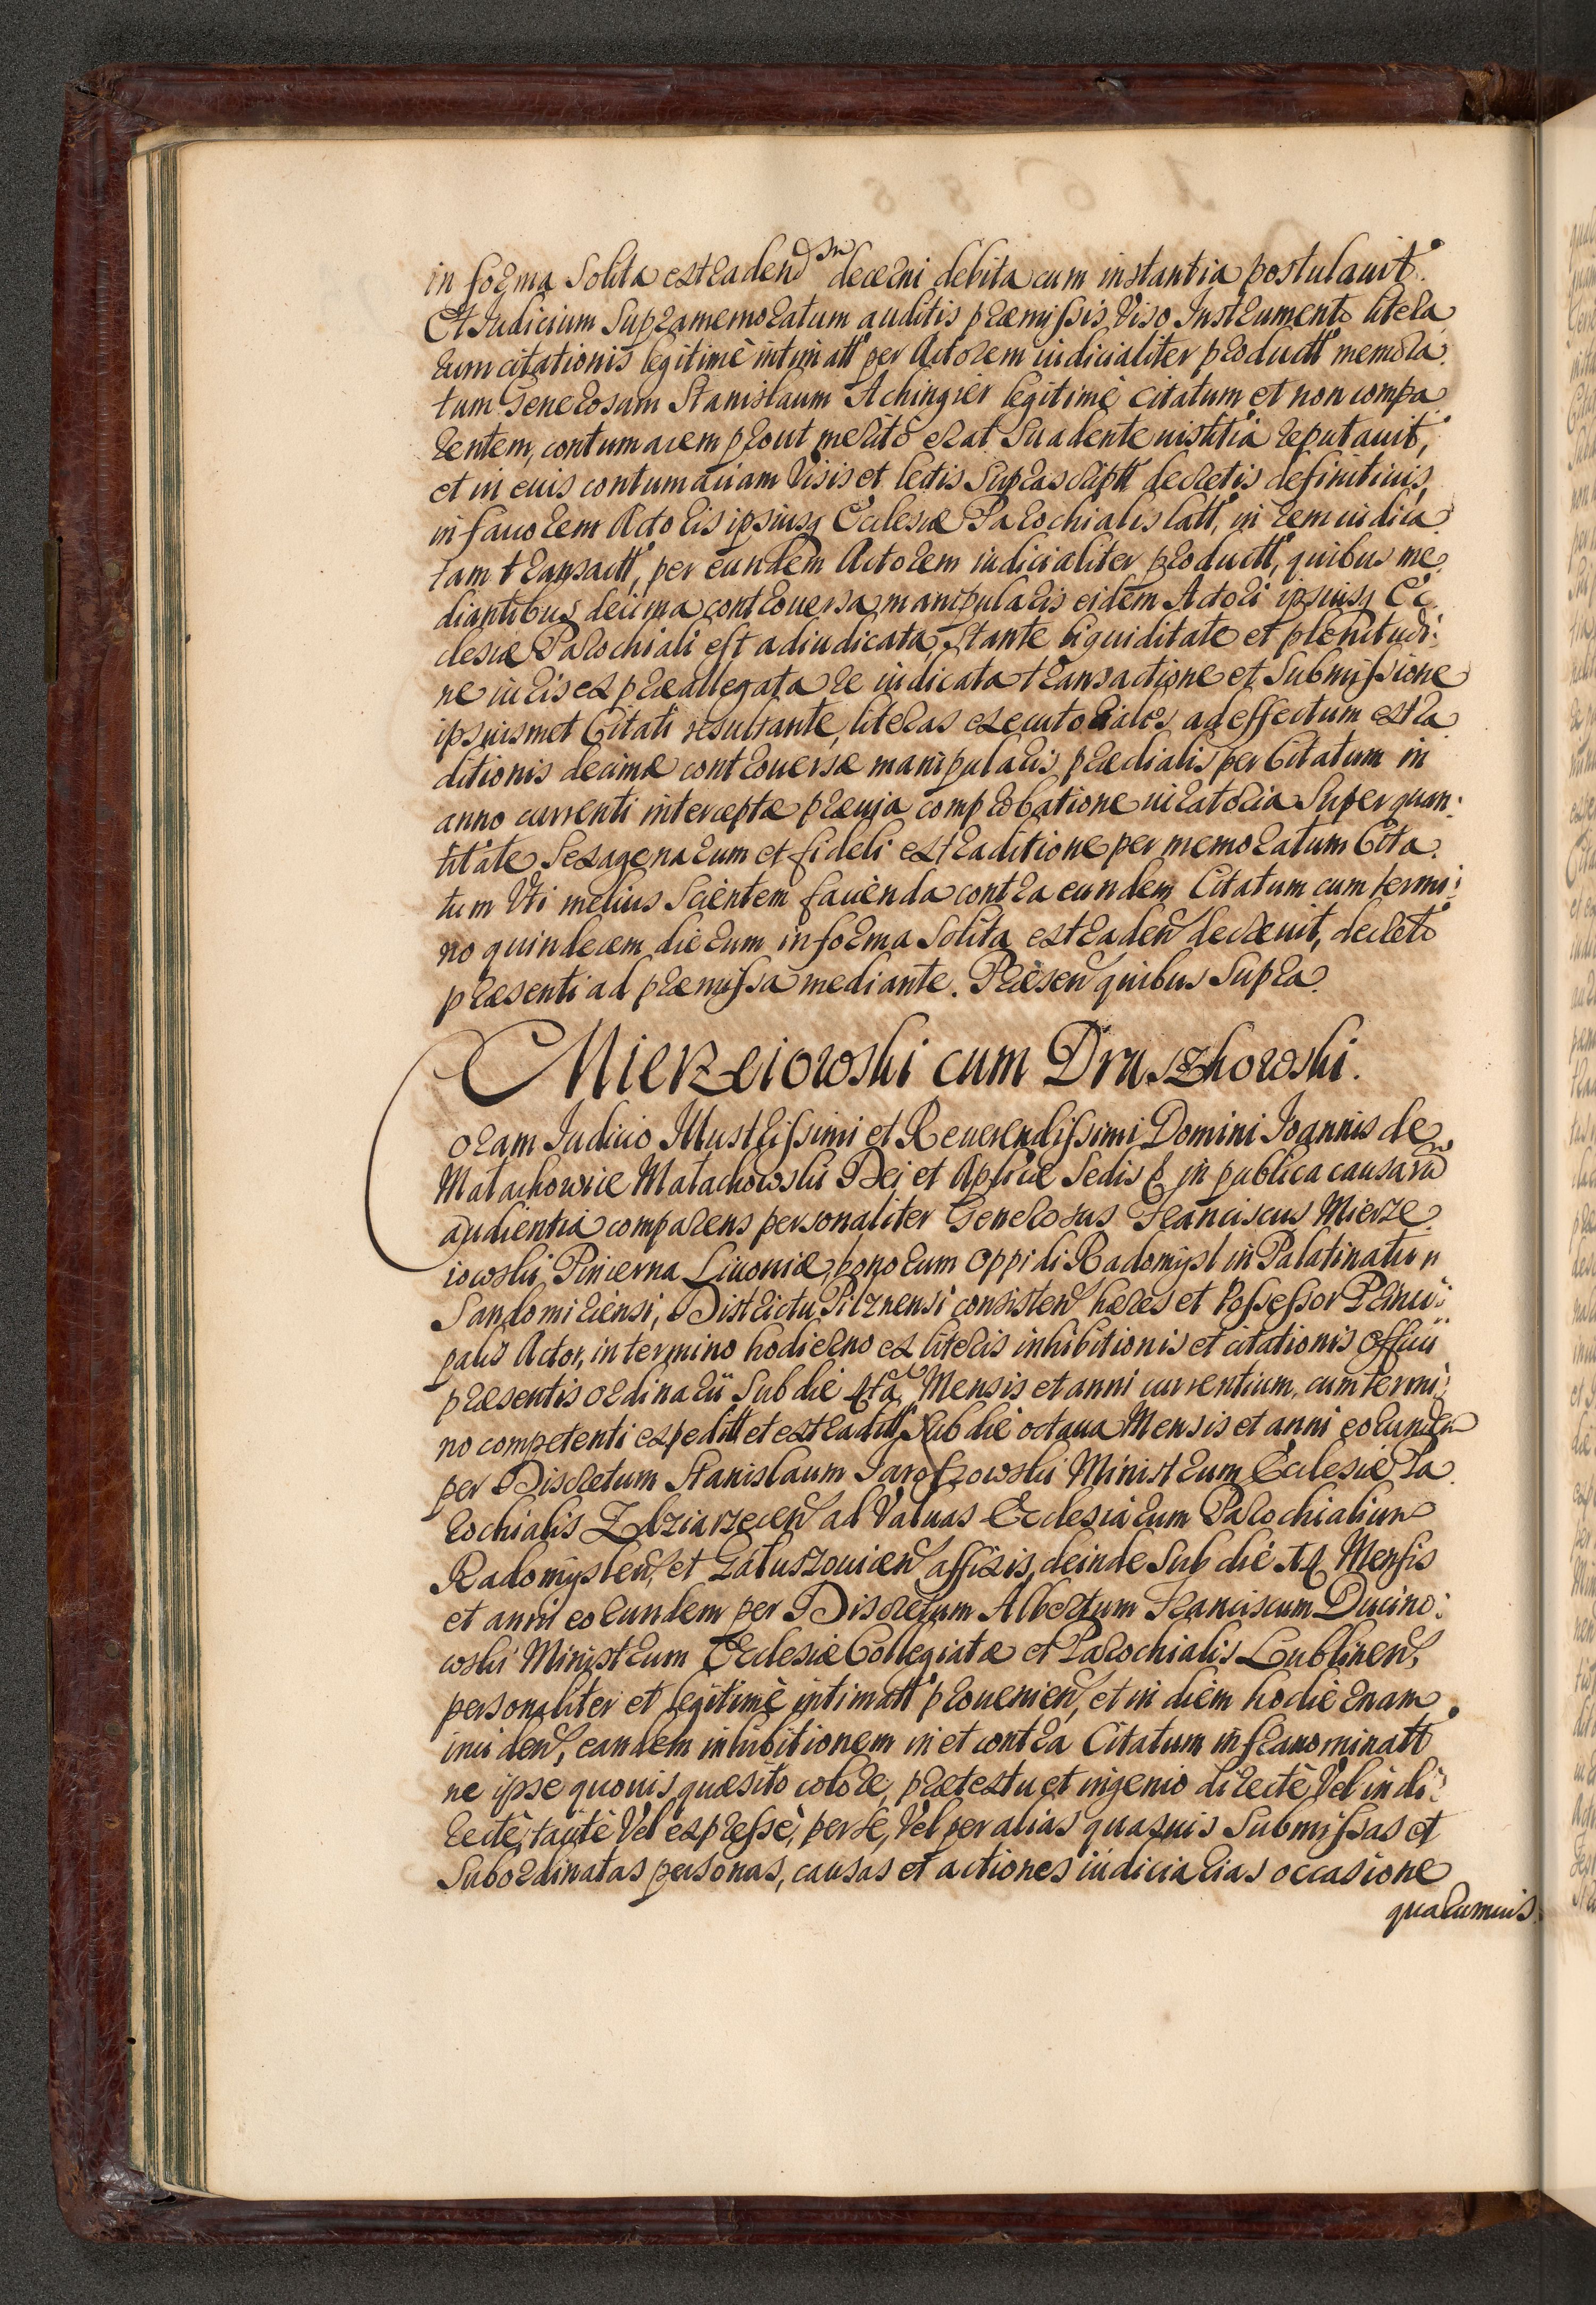 in forma Solita extraden̄ sn̄ decerni debita cum instantia postulauit.
Et Iudicium Supramemoratum auditis præmissis, Viso Instrumento litera
rum citationis legitimè intimatt per Actorem iudicialiter productt memora
tum Generosum Stanislaum Achingier legitimè citatum et non compa
rentem, contumacem prout meritò erat Suadente iustitia reputauit,
et in eius contumaciam Visis et lectis Suprascriptt decretis definitiuis,
in fauorem Actoris ipsiusq Ecclesiæ Parochialis latt, in rem iudica
tam transactt, per eundem Actorem iudicialiter productt, quibus me
diantibus decima controuersa manipularis eidem Actori ipsiusq Ec
clesiæ Parochiali est adiudicata, Stante liquiditate et plenitudi:
ne iuris ex præallegata re iudicata transactione et Submissione
ipsiusmet Citati resultante, literas executoriales ad effectum extra
ditionis decimæ controuersæ manipularis prædialis per Citatum in
anno currenti interceptæ præuia comprobatione iuratoria Super quan:
titate Sexagenarum et fideli extraditione per memoratum Cita
tum Vti melius Scientem facienda contra eundem Citatum cum termi:
no quindecem dierum in forma Solita extraden̄ decreuit, decreto
præsenti ad præmissa mediante. Præsen̄ quibus Supra.
Mierzeiowski cum Druszkowski.
Coram Iudicio Illustrissimi et Reuerendissimi Domini Ioannis de
Małachowice Małachowski Dei et Aplicæ Sedis & in publica causarū
audientia comparens personaliter Generosus Franciscus Mierze
iowski Pincerna Liuoniæ, bonorum Oppidi Radomysl in Palatinatu
Sandomiriensi, Districtu Pilznensi consisten̄ hæres et Possessor Princi:
palis Actor, in termino hodierno ex literis inhibitionis et citationis Officii
præsentis ordinarii Sub die 4tâ Mensis et anni currentium, cum termi:
no competenti expeditt et extraditt, Sub die octaua Mensis et anni eorundem
per Discretum Stanislaum Jaroszowski Ministrum Ecclesiæ Pa
rochialis Zdziarzecen̄ ad Valuas Ecclesiarum Parochialium
Radomyslen̄, et Gałuszouicen̄ affixis, deinde Sub die Mensis
et anni eorundem per Discretum Albertum Franciscum Ducino:
wski Ministrum Ecclesiæ Collegiatæ et Parochialis Lublinen̄,
personaliter et legitimè intimatt prouenien̄, et in diem hodiernam
inciden̄, eandem inhibitionem in et contra Citatum infranominatt
ne ipse quouis quæsito colore, prætextu et ingenio directè Vel indi:
rectè, tacitè Vel expressè, per se, Vel per alias quasuis Submissas et
Subordinatas personas, causas et actiones iudiciarias occasione
quarumuis